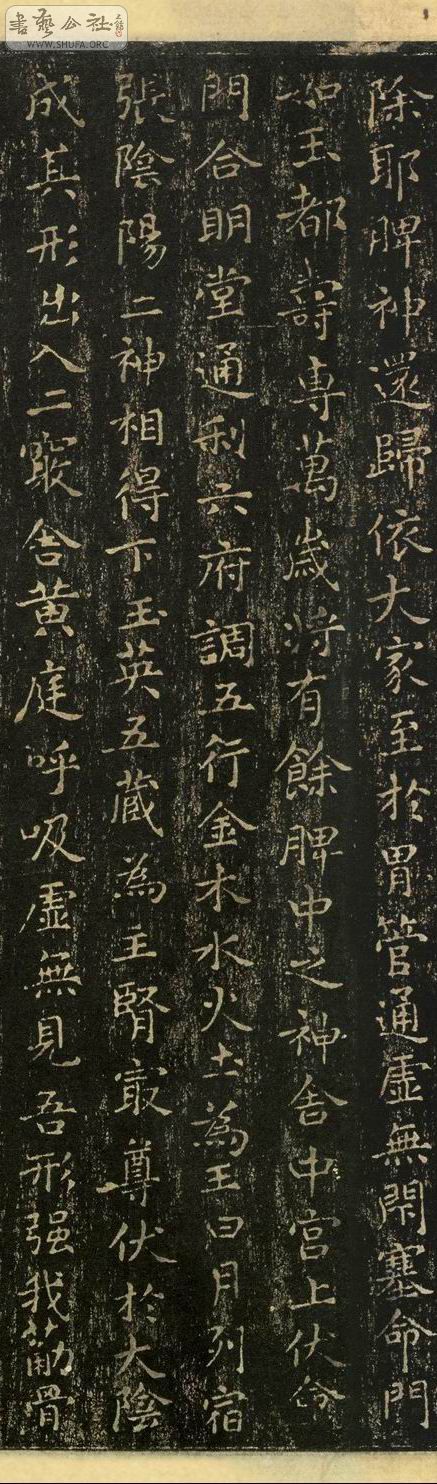 書藝公社
WWW.SHUFA.ORG
除耶脾神還歸依大家至於胃管通虛無閉塞命門
如玉都壽專萬歲將有餘脾中之神舍中宮上伏命
門合明堂通利六府調五行金木水火土為王日月列宿
張陰陽二神相得下玉英五藏為主腎㝡尊伏於大陰
成其形出入二竅舍黃庭呼吸虛無見吾形强我筋骨